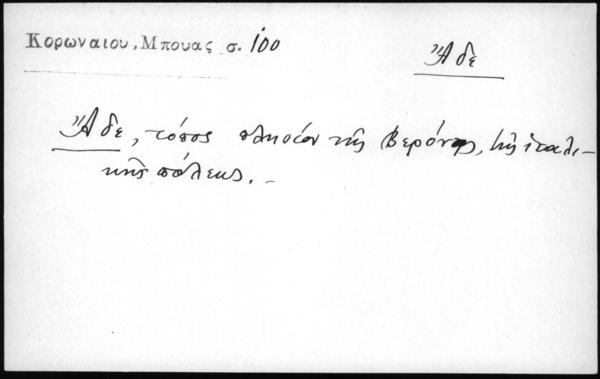 Κορωναιου, Μπουας σ. 100
Ἄδε
Ἄδε, τόπος πλησίον τῆς Βερόνας, τῆς ἰταλι-
κῆς πόλεως. –